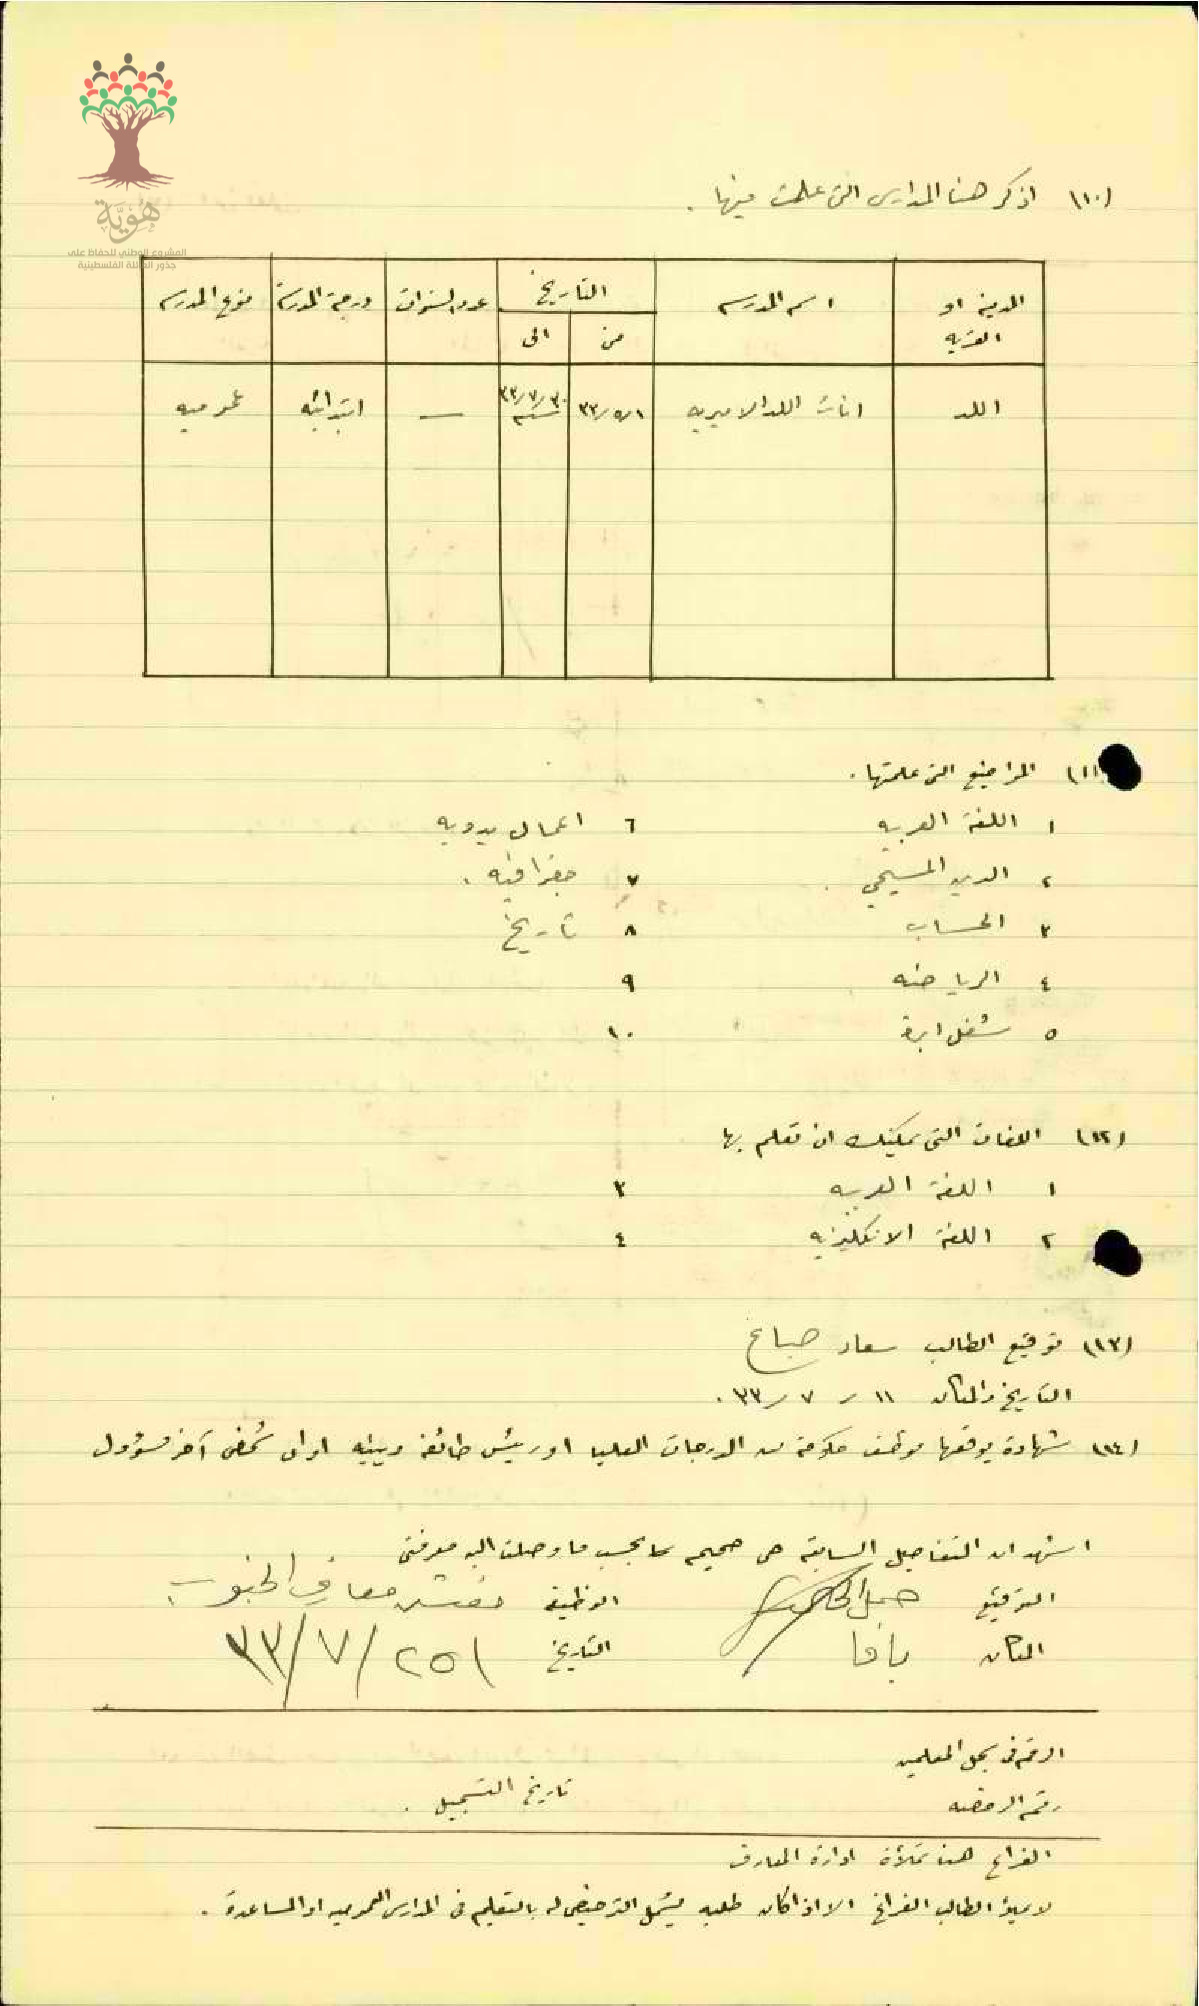 هوية
المشروع الوطني للحفاظ على
جذور العائلة الفلسطينية
(١٠) اذكر هنا المدارس التي علمت فيها .
المدينه او القريه | اسم المدرسه | التاريخ | عدد السنوات | درجة المدرسة | نوع المدرسه
من | الى
اللد | اناث اللد الاميريه | ٣٢/٩/١ | ٣٣/٧/٣٠ | — | ابتدائيه | عموميه
(١١) المواضيع التي علمتها .
١ اللغة العربيه ٦ اعمال يدويه
٢ الدين المسيحي ٧ جغرافيه .
٣ الحساب ٨ تاريخ
٤ الرياضه ٩
٥ شغل ابرة ١٠
(١٢) اللغات التي يمكنك ان تعلم بها
١ اللغة العربيه ٣
٢ اللغة الانكليزيه ٤
(١٣) توقيع الطالب سعاد صباغ
التاريخ والمكان ١١ / ٧ / ٣٣ .
(١٤) شهادة يوقعها موظف حكومة من الدرجات العليا او رئيس طائفة دينيه او اى شخص آخر مسؤول
اشهد ان التفاصيل السابقة هى صحيحه بحسب ما وصلت اليه معرفتى
التوقيع الوظيفه مفتش معارف الجنوب
المكان يافا التاريخ ٢٥ / ٧ / ٣٣
الرقم في سجل المعلمين
رقم الرخصه تاريخ التسجيل .
الفراغ هنا تملأه ادارة المعارف
لا يملأ الطالب الفراغ الا اذا كان طلبه يشمل الترخيص له بالتعليم فى المدارس العموميه او المساعدة .